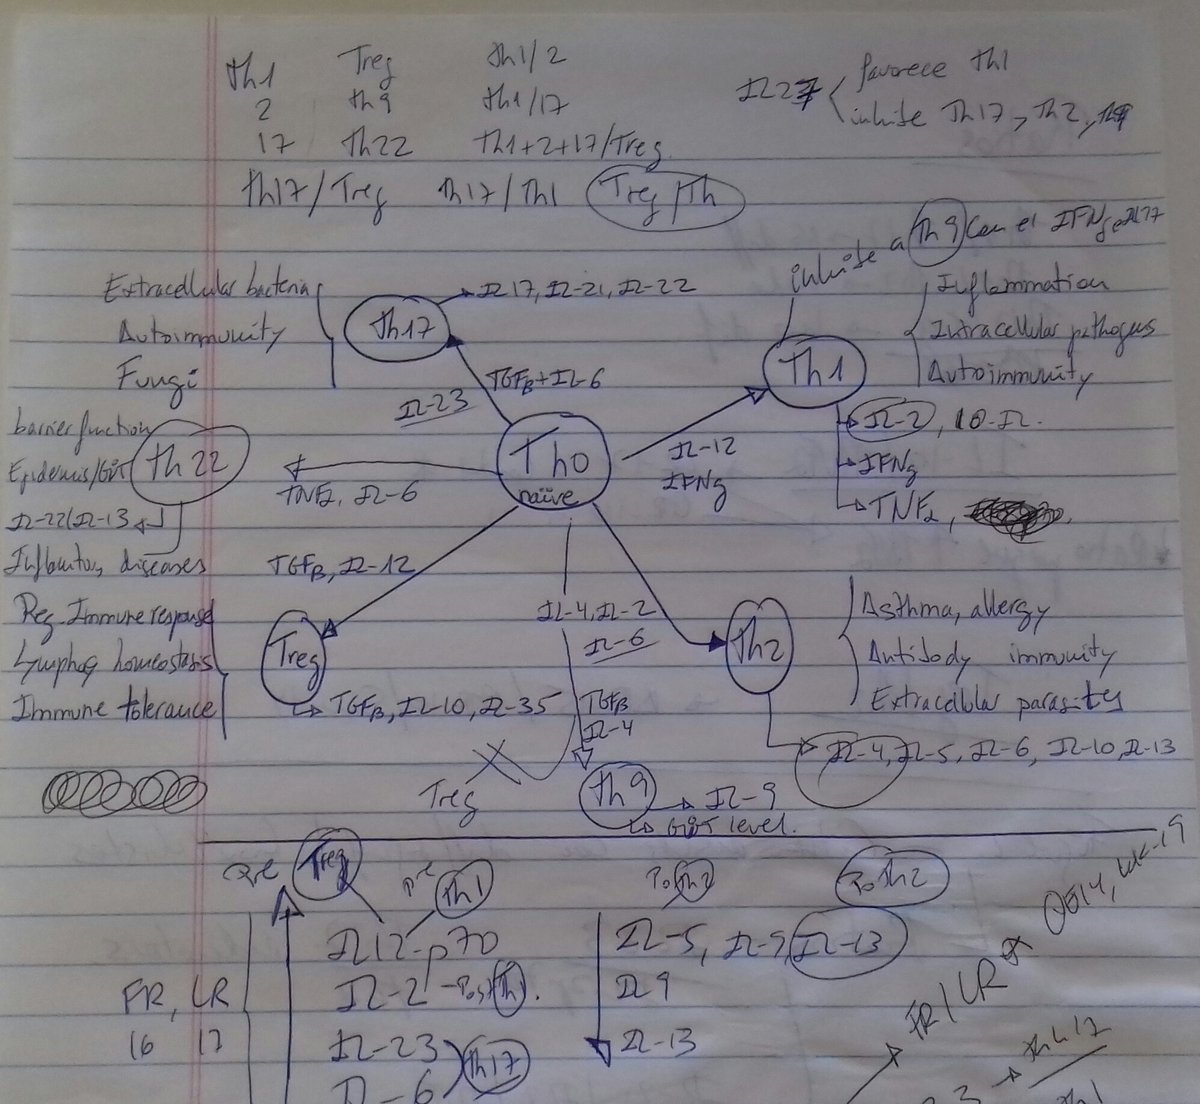 Th1 Treg Th1/2
2 Th9 Th1/17
17 Th22 Th1+2+17/Treg
Th17/Treg Th17/Th1 Treg/Th
IL27 favorece Th1
inhibe Th17, Th2, Th9
inhibe a Th9 con el IFNg e IL27
Extracellular bacteria
Autoimmunity
Fungi
Th17
IL17, IL-21, IL-22
TGFβ+IL-6
IL-23
Th1
Inflammation
Intracellular pathogens
Autoimmunity
IL-2, 10-IL.
IFNg
TNFα,
IL-12
IFNg
Th0
naïve
barrier function
Epidermis/GUT
Th22
IL-22/IL-13
Inflamatory diseases
TNFα, IL-6
TGFβ, IL-12
Reg. Immune response
Lymphog homeostasis
Immune tolerance
Treg
TGFβ, IL-10, IL-35
IL-4, IL-2
IL-6
Th2
Asthma, allergy
Antibody immunity
Extracellular parasites
IL-4, IL-5, IL-6, IL-10, IL-13
TGFβ
IL-4
Treg
Th9
IL-9
GUT level.
pre Treg pre Th1
Th2
Th2
IL12-p70
IL-2 -Post Th1.
IL-23
IL-6
Th17
FR, LR
16 17
IL-5, IL-9, IL-13
IL9
IL-13
FR/LR
Th17
Th1